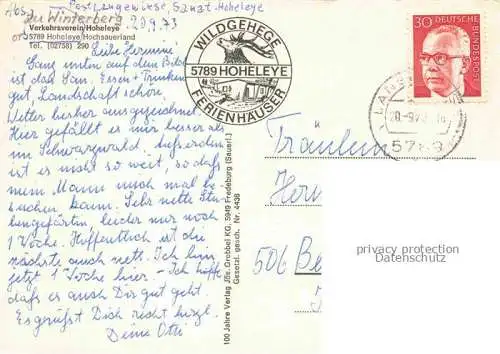 Abs.
zu Winterberg
Post Langewiese, Sanat. Hoheleye
20.9.73
Verkehrsverein/Hoheleye
5789 Hoheleye/Hochsauerland
Tel. (02758) 290
Liebe Hermine!
Ganz unten auf dem Bild
ist das San. Essen + Trinken
gut, Landschaft schön,
Wetter bisher ausgezeichnet.
Hier gefällt es mir besser als
im Schwarzwald. Außerdem
ist es nicht so weit, so daß
mein Mann mich mal be-
suchen kann. Sehr nette
gefährtin leider nur noch
1 Woche. Hoffentlich ist die
nächste auch nett. Ich bin
jetzt 1 Woche hier. - Ich hoffe
daß es auch Dir gut geht.
Es grüßt Dich recht herzl.
Deine Otti
WILDGEHEGE
5789 HOHELEYE
FERIENHÄUSER
30 DEUTSCHE
BUNDESPOST
5789
100 Jahre Verlag Jos. Grobbel KG, 5949 Fredeburg (Sauerl.)
Gesetzl. gesch. Nr. 4438
Fräulein
506 Be
privacy protection
Datenschutz